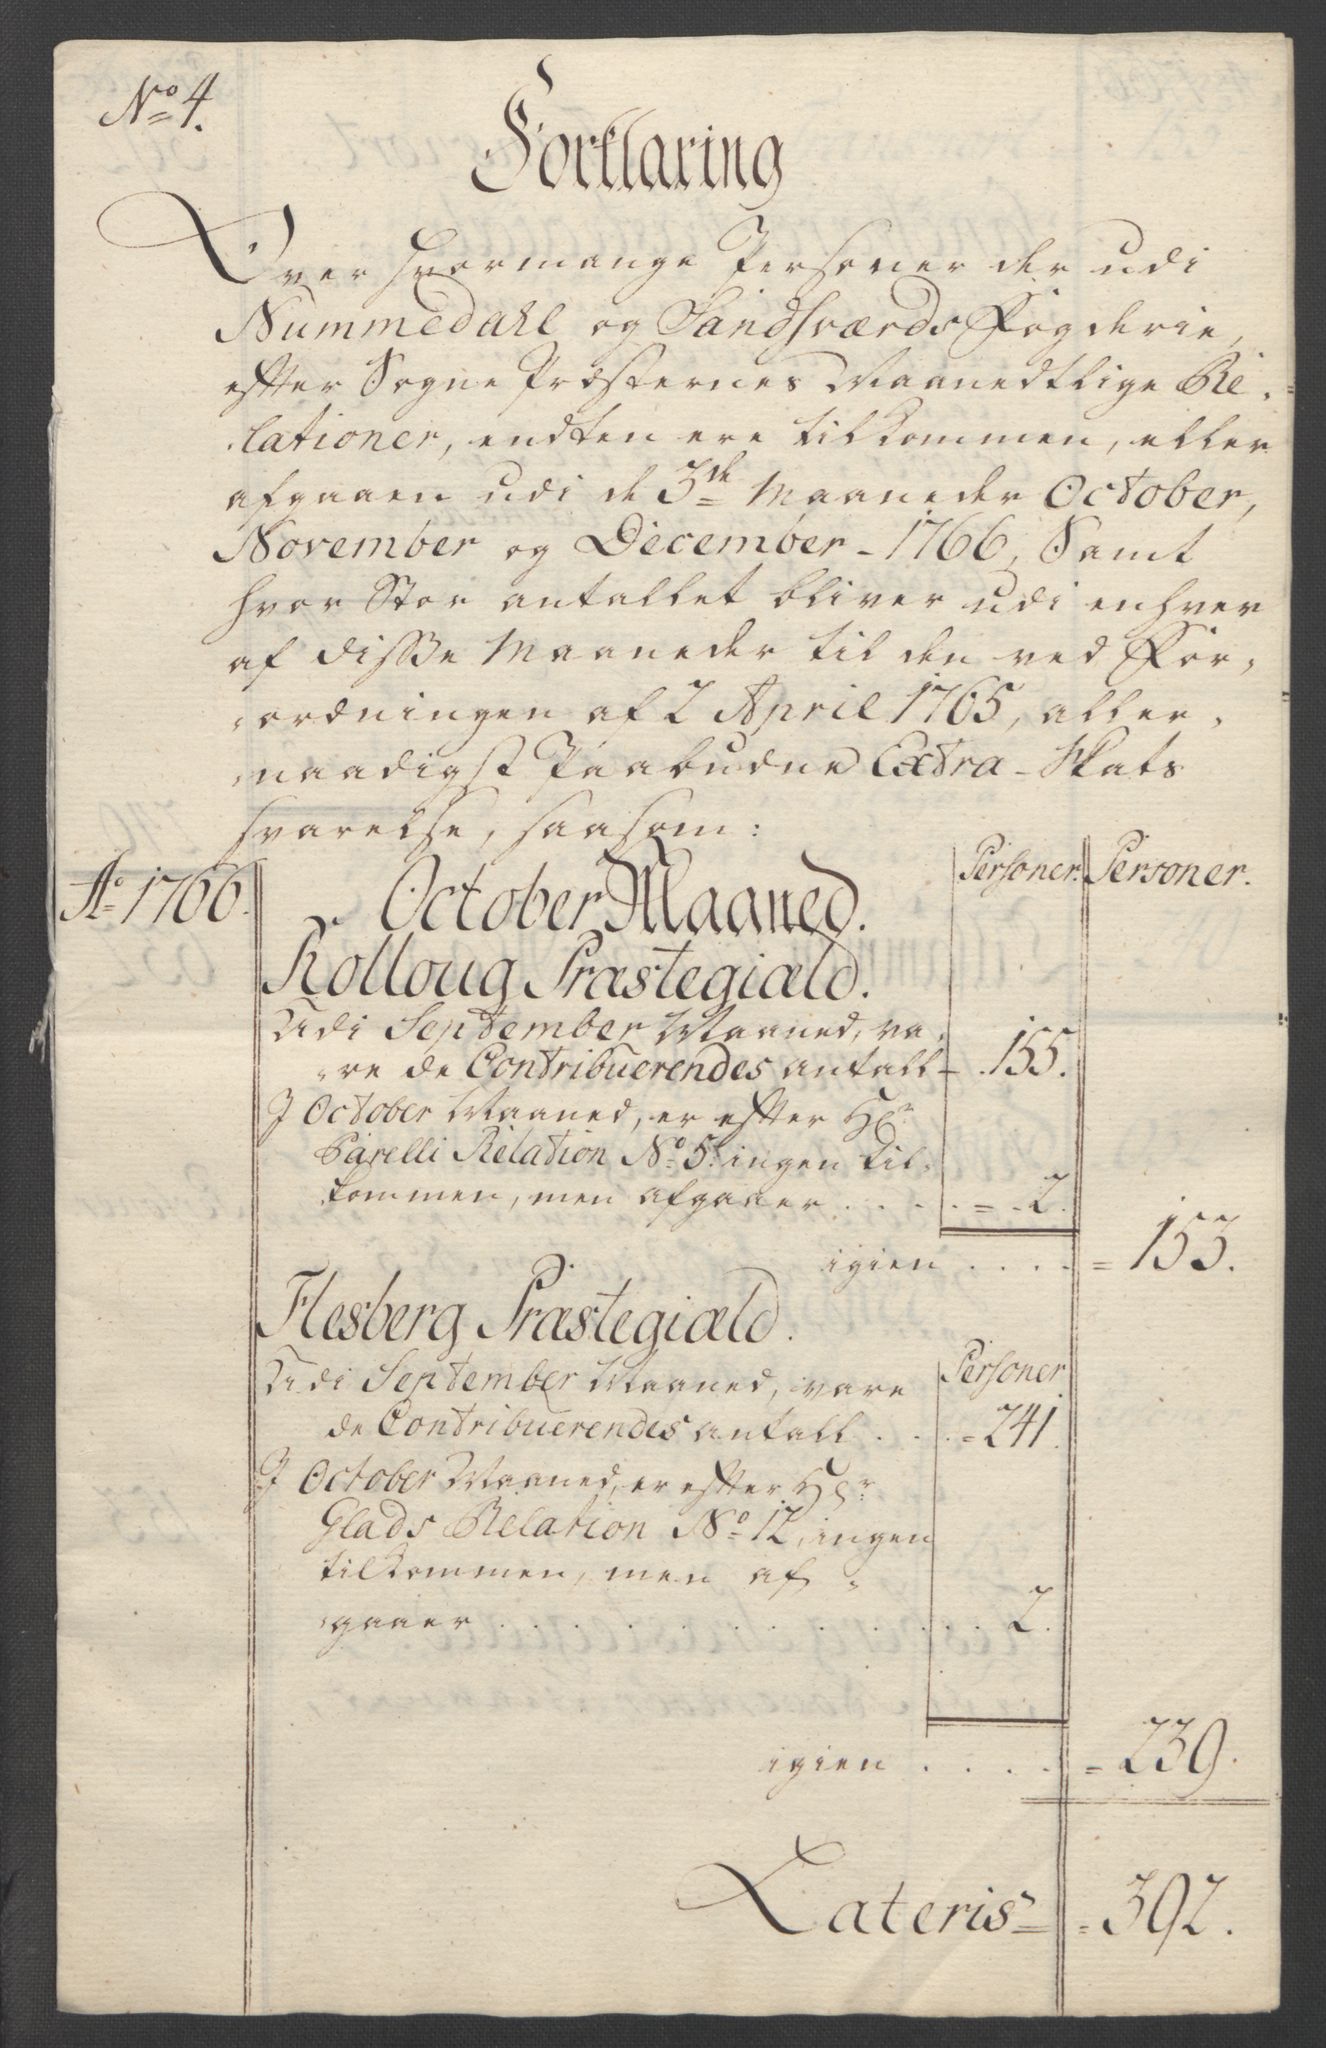 No 4.
Forklaring
Over hvormange Personer der udi
Nummedahl og Sandsværds Fogderie,
efter Sogne Præsternes Maanedtlige Re-
lationer, endten ere tilkommen, eller
afgaaen udi de 3de Maaneder October,
November og December - 1766, Samt
hvor Stor antallet bliver udi enhver
af disse Maaneder til den ved For-
ordningen af 2 April 1765, aller-
naadigst Paabudne Extra-Skats
svarelse, saasom:
Ao 1766.
October Maaned.
Personer. Personer.
Rolloug Præstegiæld.
Udi September Maaned, va-
re de Contribuerendes antall - 155.
I October Maaned, er efter Hr
Parelli Relation No 5. ingen til-
kommen, men afgaaer . . . . = 2.
igien . . . . = 153.
Flesberg Præstegiæld.
Personer
Udi September Maaned, vare
de Contribuerendes antall . . . = 241.
I October Maaned, er efter Hr
Glads Relation No 12, ingen
tilkommen, men af-
gaaer . . . . . . . . . . 2.
igien . . . . = 239.
Lateris = 392.